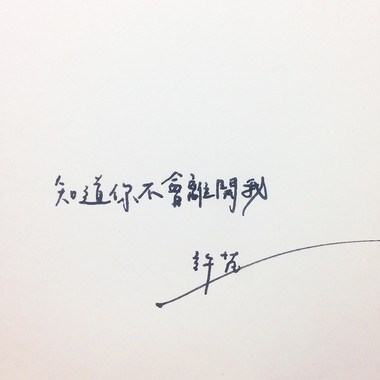 知道你不會離開我
許